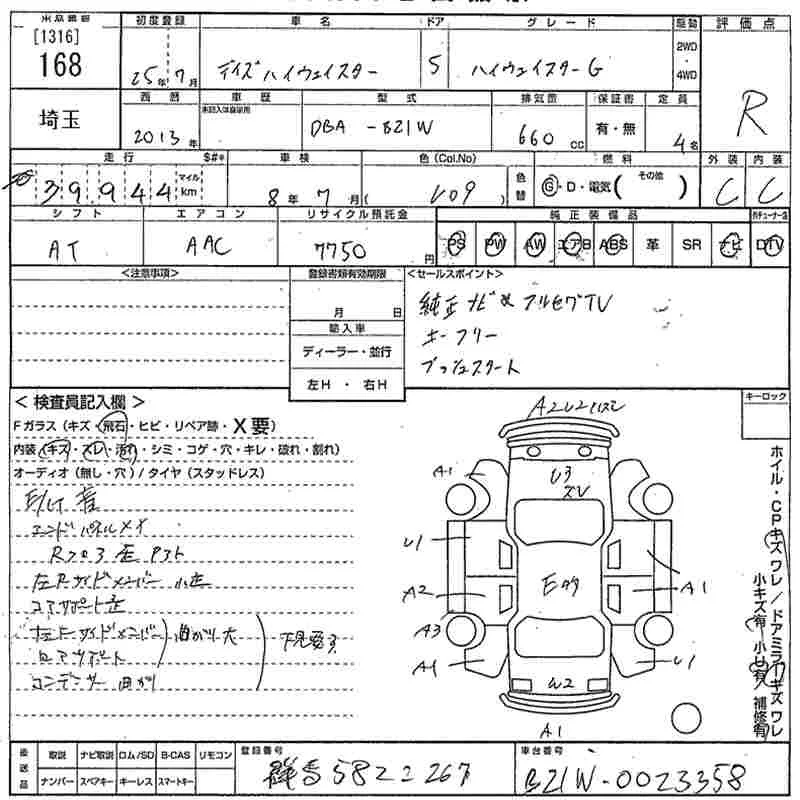 [1316]
168
埼玉
初度登録
25年7月
車名
デイズハイウェイスター
ドア
5
グレード
ハイウェイスターG
駆動
2WD
・
4WD
評価点
R
西暦
2013年
車歴
型式
DBA -B21W
排気量
660 cc
保証書
有・無
定員
4名
走行
$#*
39944
マイル
km
車検
8年7月( )
色(Col.No)
L09
色替
燃料
G・D・電気( その他 )
外装
C
内装
C
シフト
AT
エアコン
AAC
リサイクル預託金
7750円
純正装備品
PS PW AW エアB ABS 革 SR ナビ DTV
<注意事項>
登録書類有効期限
月 日
輸入車
ディーラー・並行
左H ・ 右H
<セールスポイント>
純正ナビ&フルセグTV
キーフリー
プッシュスタート
<検査員記入欄>
Fガラス(キズ・飛石・ヒビ・リペア跡・X要)
内装(キズ・スレ・汚れ・シミ・コゲ・穴・キレ・破れ・割れ)
オーディオ(無し・穴)/タイヤ(スタッドレス)
エンドパネルメイ
Rフロア歪
左Rサイドメンバー小歪
コアサポート歪
左Fサイドメンバー
ロアサポート
曲がり大
下見要ス
コンデンサー曲がり
キーロック
ホイル・CPキズワレ/ドアミラーキズワレ
小キズ有 小U有 補修有
A2U2
A1
U3
U1
A2
Eクタ
A1
A3
A1
U2
U1
A1
後送品
取説 ナビ取説 ロム/SD B-CAS リモコン
ナンバー スペアキー キーレス スマートキー
登録番号
群馬582こ267
車台番号
B21W-0023358